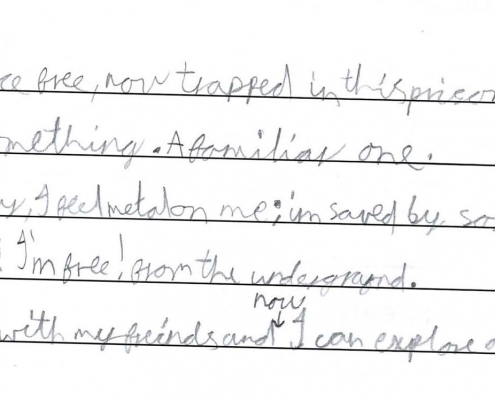 ce free, now trapped in this prison
mething. A familiar one.
y, I feel metal on me; im saved by so
! I'm free! from the undergraynd.
now
with my freinds and I can explore